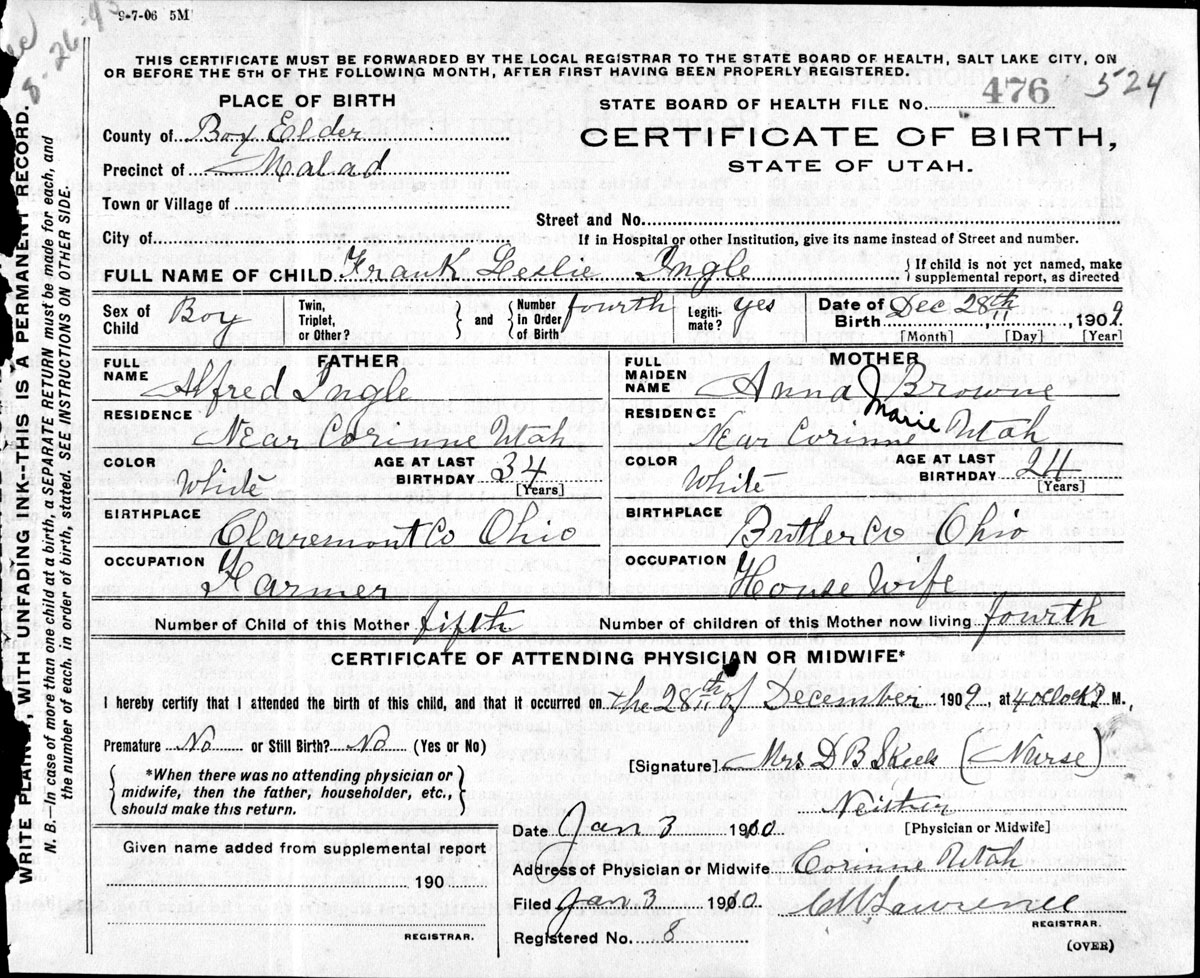 9-7-06 5M
8-26-43
THIS CERTIFICATE MUST BE FORWARDED BY THE LOCAL REGISTRAR TO THE STATE BOARD OF HEALTH, SALT LAKE CITY, ON
OR BEFORE THE 5TH OF THE FOLLOWING MONTH, AFTER FIRST HAVING BEEN PROPERLY REGISTERED.
PLACE OF BIRTH
STATE BOARD OF HEALTH FILE No. 476 524
County of Box Elder
CERTIFICATE OF BIRTH,
Precinct of Malad
STATE OF UTAH.
Town or Village of
Street and No.
City of
If in Hospital or other Institution, give its name instead of Street and number.
FULL NAME OF CHILD Frank Leslie Ingle { If child is not yet named, make supplemental report, as directed
Sex of Child Boy Twin, Triplet, or Other? } and { Number in Order of Birth fourth Legiti- mate? yes Date of Birth Dec 28th, 1909
[Month] [Day] [Year]
FATHER
MOTHER
FULL NAME Alfred Ingle
FULL MAIDEN NAME Anna Marie Browne
RESIDENCE Near Corinne Utah
RESIDENCE Near Corinne Utah
COLOR White AGE AT LAST BIRTHDAY 34 [Years]
COLOR White AGE AT LAST BIRTHDAY 24 [Years]
BIRTHPLACE Claremont Co Ohio
BIRTHPLACE Brutler Co Ohio
OCCUPATION Farmer
OCCUPATION House Wife
Number of Child of this Mother fifth Number of children of this Mother now living fourth
CERTIFICATE OF ATTENDING PHYSICIAN OR MIDWIFE*
I hereby certify that I attended the birth of this child, and that it occurred on the 28th of December 1909, at 4 oclock P. M.,
Premature No or Still Birth? No (Yes or No)
[Signature] Mrs D B Skeels (Nurse)
{ *When there was no attending physician or midwife, then the father, householder, etc., should make this return. }
Neither
[Physician or Midwife]
Date Jan 3 1910
Given name added from supplemental report
190
Address of Physician or Midwife Corinne Utah
Filed Jan 3 1910. C W Lawrence
REGISTRAR.
REGISTRAR.
Registered No. 8
(OVER)
WRITE PLAINLY, WITH UNFADING INK--THIS IS A PERMANENT RECORD.
N. B.—In case of more than one child at a birth, a SEPARATE RETURN must be made for each, and
the number of each, in order of birth, stated. SEE INSTRUCTIONS ON OTHER SIDE.